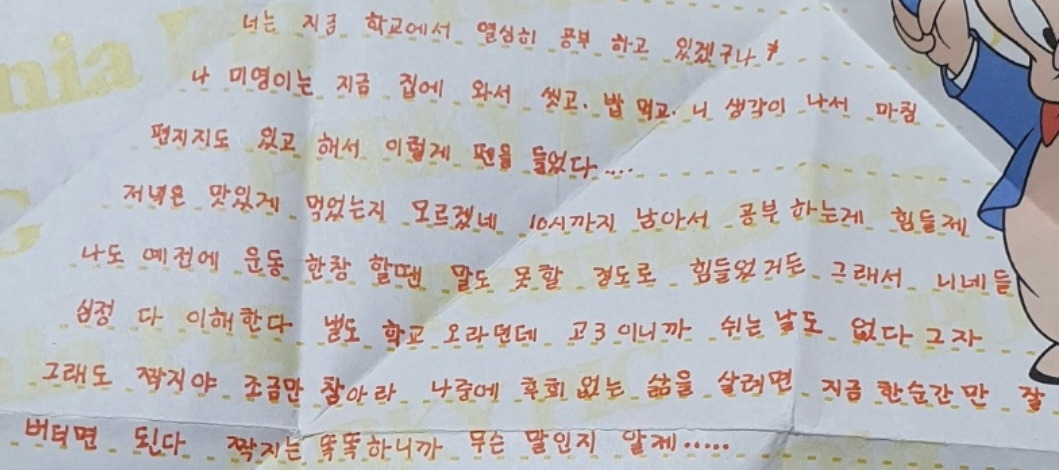 너는 지금 학교에서 열심히 공부 하고 있겠구나
나 미영이는 지금 집에 와서 씻고. 밥 먹고. 니 생각이 나서 마침
편지지도 있고 해서 이렇게 펜을 들었다....
저녁은 맛있게 먹었는지 모르겠네 10시까지 남아서 공부 하는게 힘들제
나도 예전에 운동 한창 할땐 말도 못할 정도로 힘들었거든 그래서 니네들
심정 다 이해한다 낼도 학교 오라던데 고3이니까 쉬는날도 없다 그자
그래도 짝지야 조금만 참아라 나중에 후회 없는 삶을 살려면 지금 한순간만 잘
버텨면 된다 짝지는 똑똑하니까 무슨 말인지 알제.....